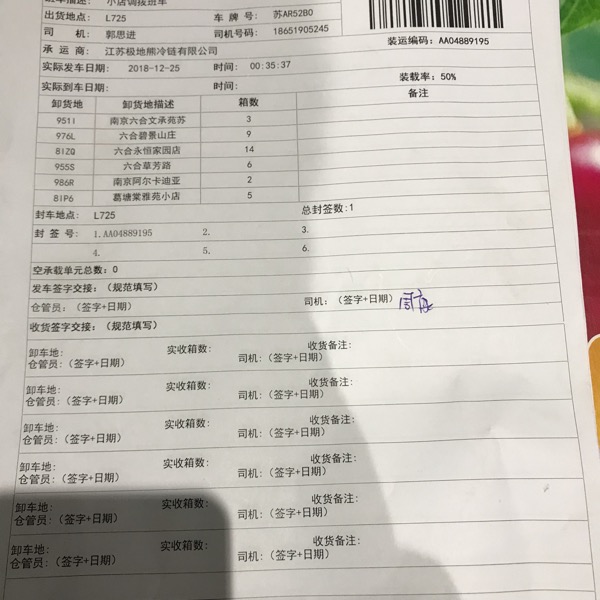 班车描述： 小店调拨班车
出货地点： L725 车 牌 号： 苏AR52B0
司 机： 郭思进 司机号码： 18651905245
承 运 商： 江苏极地熊冷链有限公司 装运编码：AA04889195
实际发车日期： 2018-12-25 时间： 00:35:37
实际到车日期： 时间： 装载率：50%
卸货地 卸货地描述 箱数 备注
951I 南京六合文承苑苏 3
976L 六合碧景山庄 9
8IZQ 六合永恒家园店 14
955S 六合草芳路 6
986R 南京阿尔卡迪亚 2
8IP6 葛塘棠雅苑小店 5
封车地点： L725 总封签数:1
封 签 号： 1.AA04889195 2. 3.
4. 5. 6.
空承载单元总数：0
发车签字交接：（规范填写）
仓管员：（签字+日期） 司机：（签字+日期）
收货签字交接：（规范填写）
卸车地： 实收箱数： 收货备注：
仓管员：（签字+日期） 司机：（签字+日期）
卸车地： 实收箱数： 收货备注：
仓管员：（签字+日期） 司机：（签字+日期）
卸车地： 实收箱数： 收货备注：
仓管员：（签字+日期） 司机：（签字+日期）
卸车地： 实收箱数： 收货备注：
仓管员：（签字+日期） 司机：（签字+日期）
卸车地： 实收箱数： 收货备注：
仓管员：（签字+日期） 司机：（签字+日期）
卸车地： 实收箱数： 收货备注：
仓管员：（签字+日期） 司机：（签字+日期）